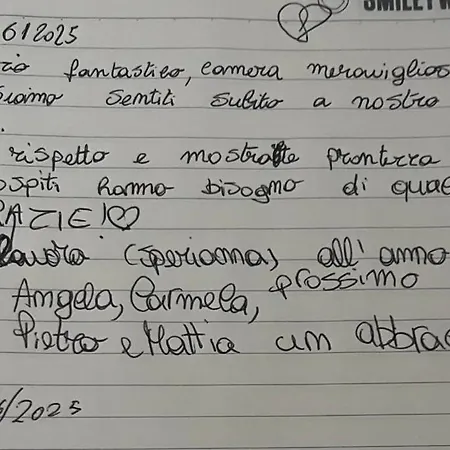 SMILEY W
61 2025
zio fantastico, camera meraviglios
siamo sentiti subito a nostro
.
rispetto e mostrate prontezza
ospiti hanno bisogno di qual
RAZIE!♡
(speriamo) all' anno
prossimo
Angela, Carmela,
Pietro e Mattia un abbrac
/2025